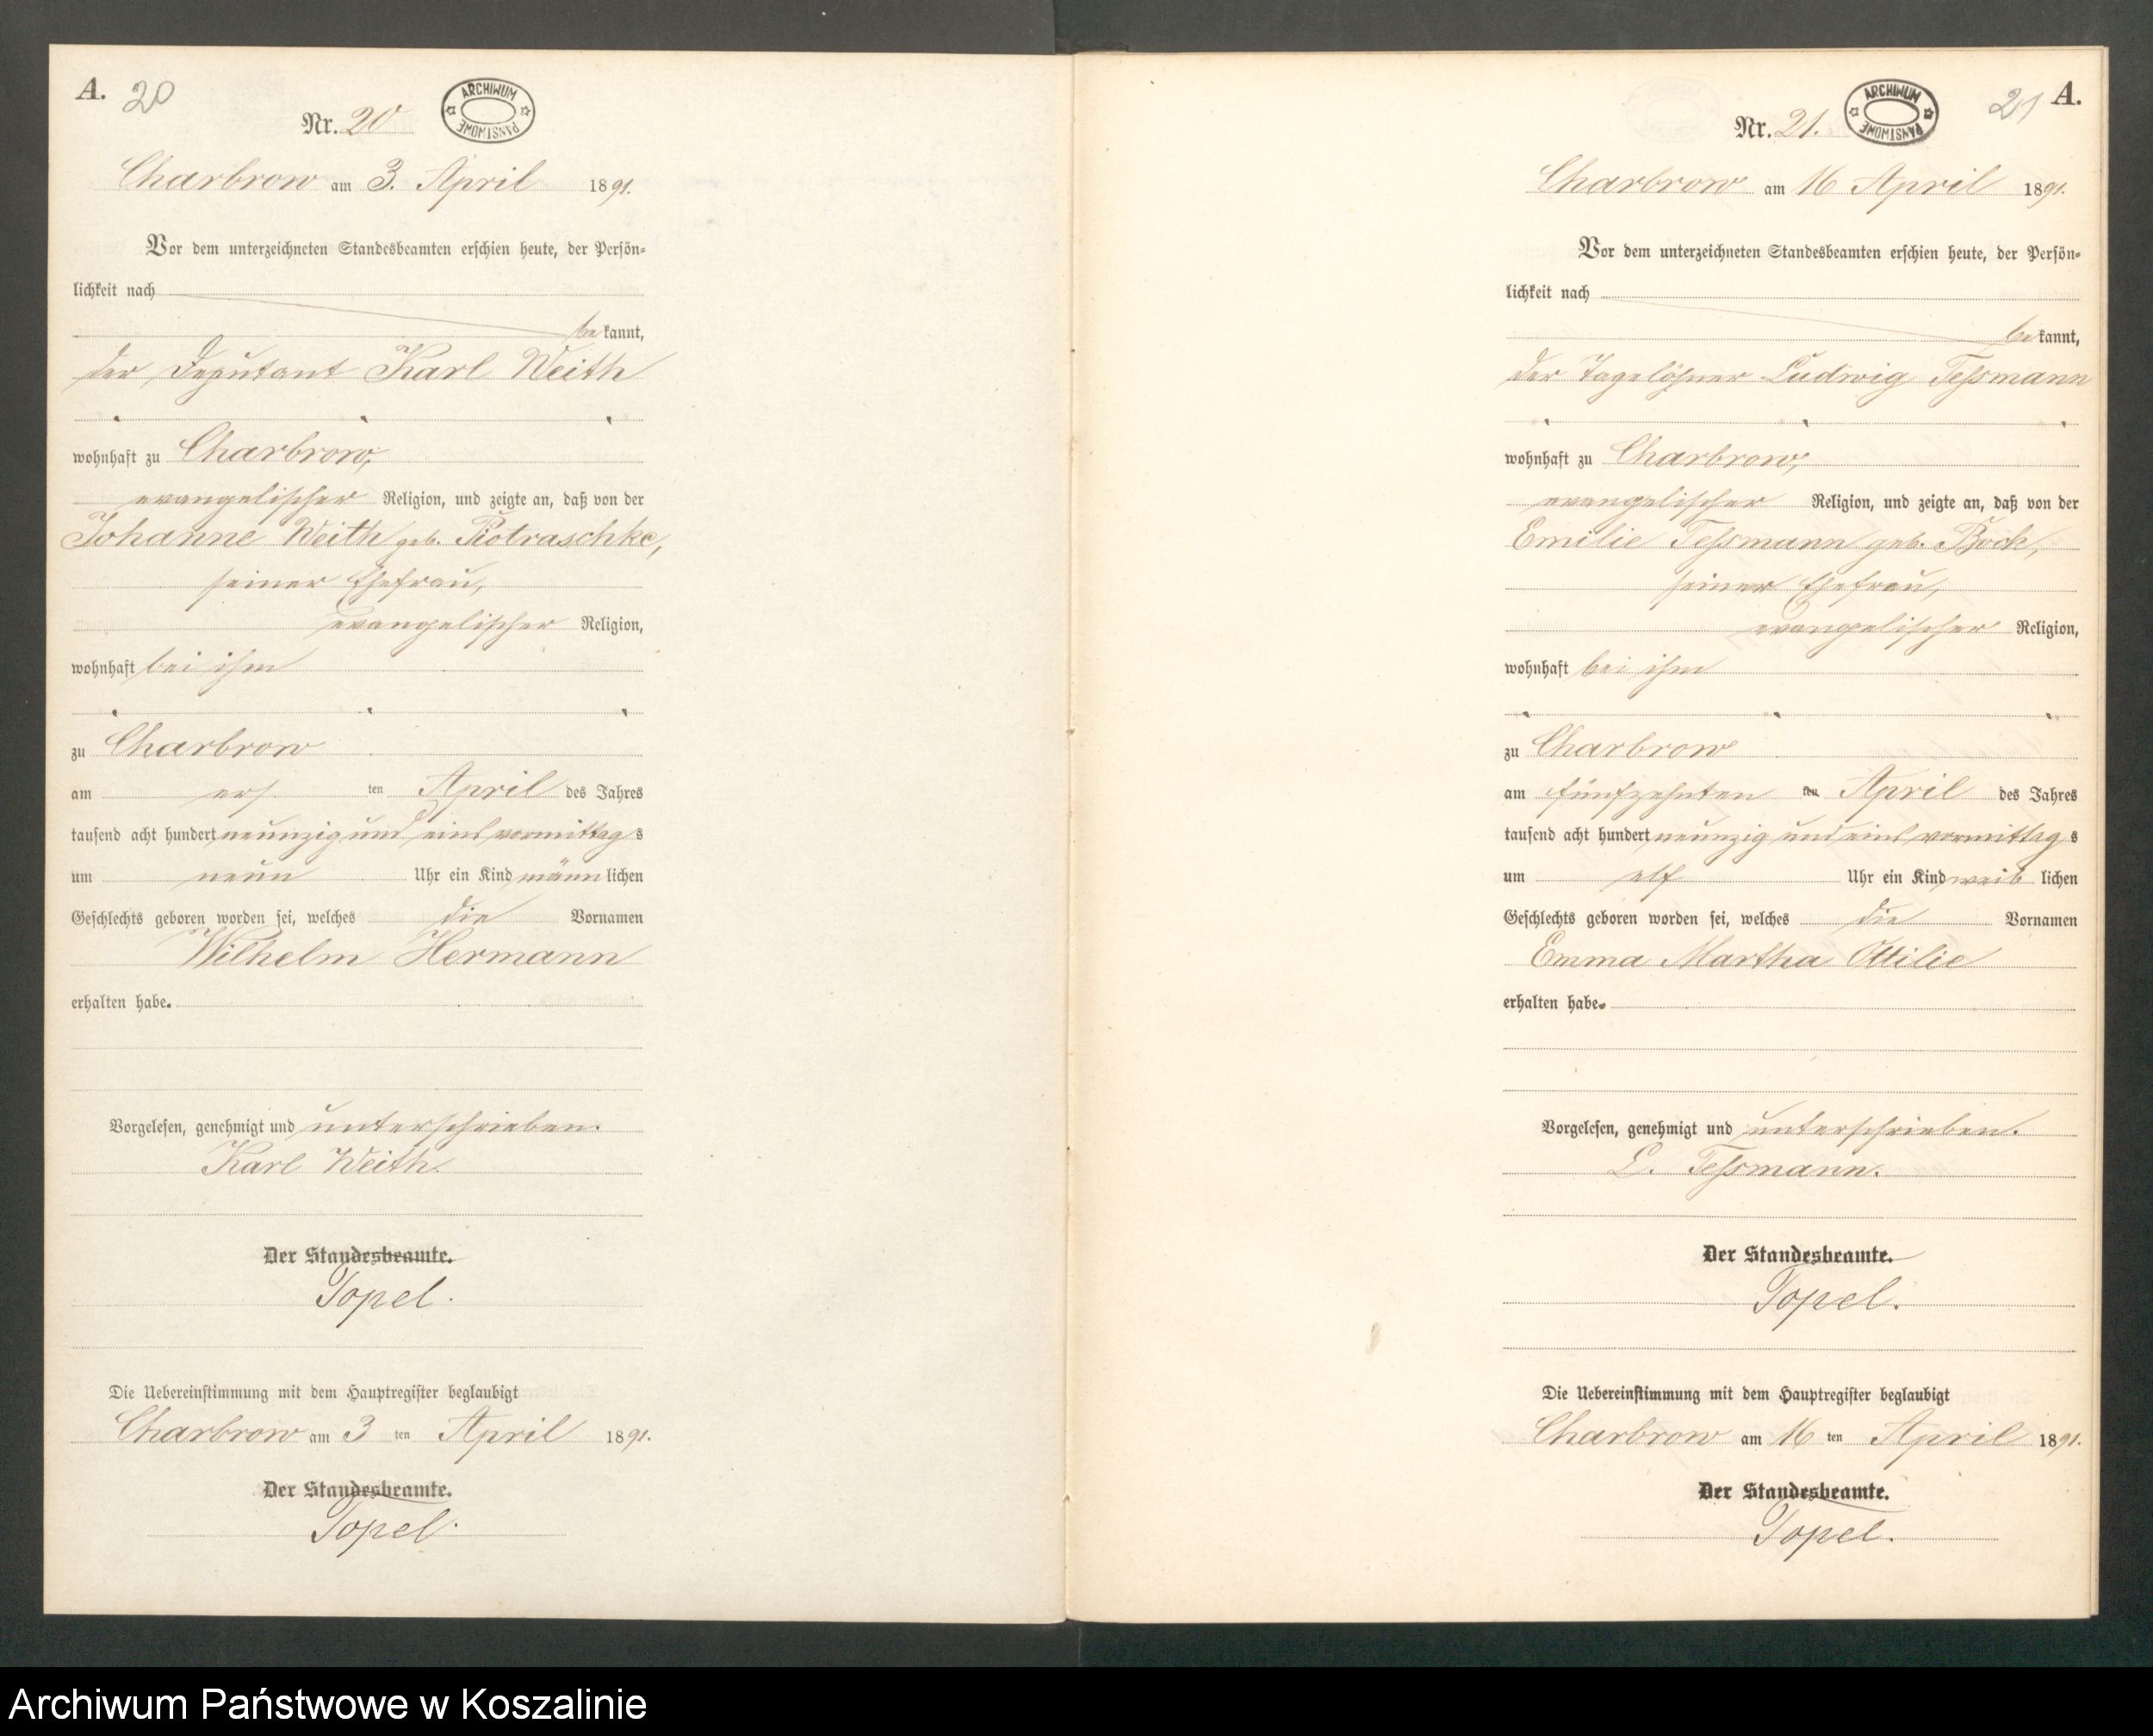 A. 20
ARCHIWUM PAŃSTWOWE
Nr. 20
Charbrow am 3. April 1891.
Vor dem unterzeichneten Standesbeamten erschien heute, der Persön-
lichkeit nach
bekannt,
der Deputant Karl Weith
wohnhaft zu Charbrow,
evangelischer Religion, und zeigte an, daß von der
Johanne Weith geb. Piotraschke,
seiner Ehefrau,
evangelischer Religion,
wohnhaft bei ihm
zu Charbrow
am ersten April des Jahres
tausend acht hundert neunzig und eins vormittags
um neun Uhr ein Kind männlichen
Geschlechts geboren worden sei, welches die Vornamen
Wilhelm Hermann
erhalten habe.
Vorgelesen, genehmigt und unterschrieben.
Karl Weith.
Der Standesbeamte.
Topel.
Die Uebereinstimmung mit dem Hauptregister beglaubigt
Charbrow am 3 ten April 1891.
Der Standesbeamte.
Topel.
21 A.
ARCHIWUM PAŃSTWOWE
Nr. 21.
Charbrow am 16 April 1891.
Vor dem unterzeichneten Standesbeamten erschien heute, der Persön-
lichkeit nach
bekannt,
der Tagelöhner Ludwig Teßmann
wohnhaft zu Charbrow,
evangelischer Religion, und zeigte an, daß von der
Emilie Teßmann geb. Bock,
seiner Ehefrau,
evangelischer Religion,
wohnhaft bei ihm
zu Charbrow
am fünfzehnten ten April des Jahres
tausend acht hundert neunzig und eins vormittags
um elf Uhr ein Kind weiblichen
Geschlechts geboren worden sei, welches die Vornamen
Emma Martha Ottilie
erhalten habe.
Vorgelesen, genehmigt und unterschrieben.
L. Teßmann.
Der Standesbeamte.
Topel.
Die Uebereinstimmung mit dem Hauptregister beglaubigt
Charbrow am 16 ten April 1891.
Der Standesbeamte.
Topel.
Archiwum Państwowe w Koszalinie